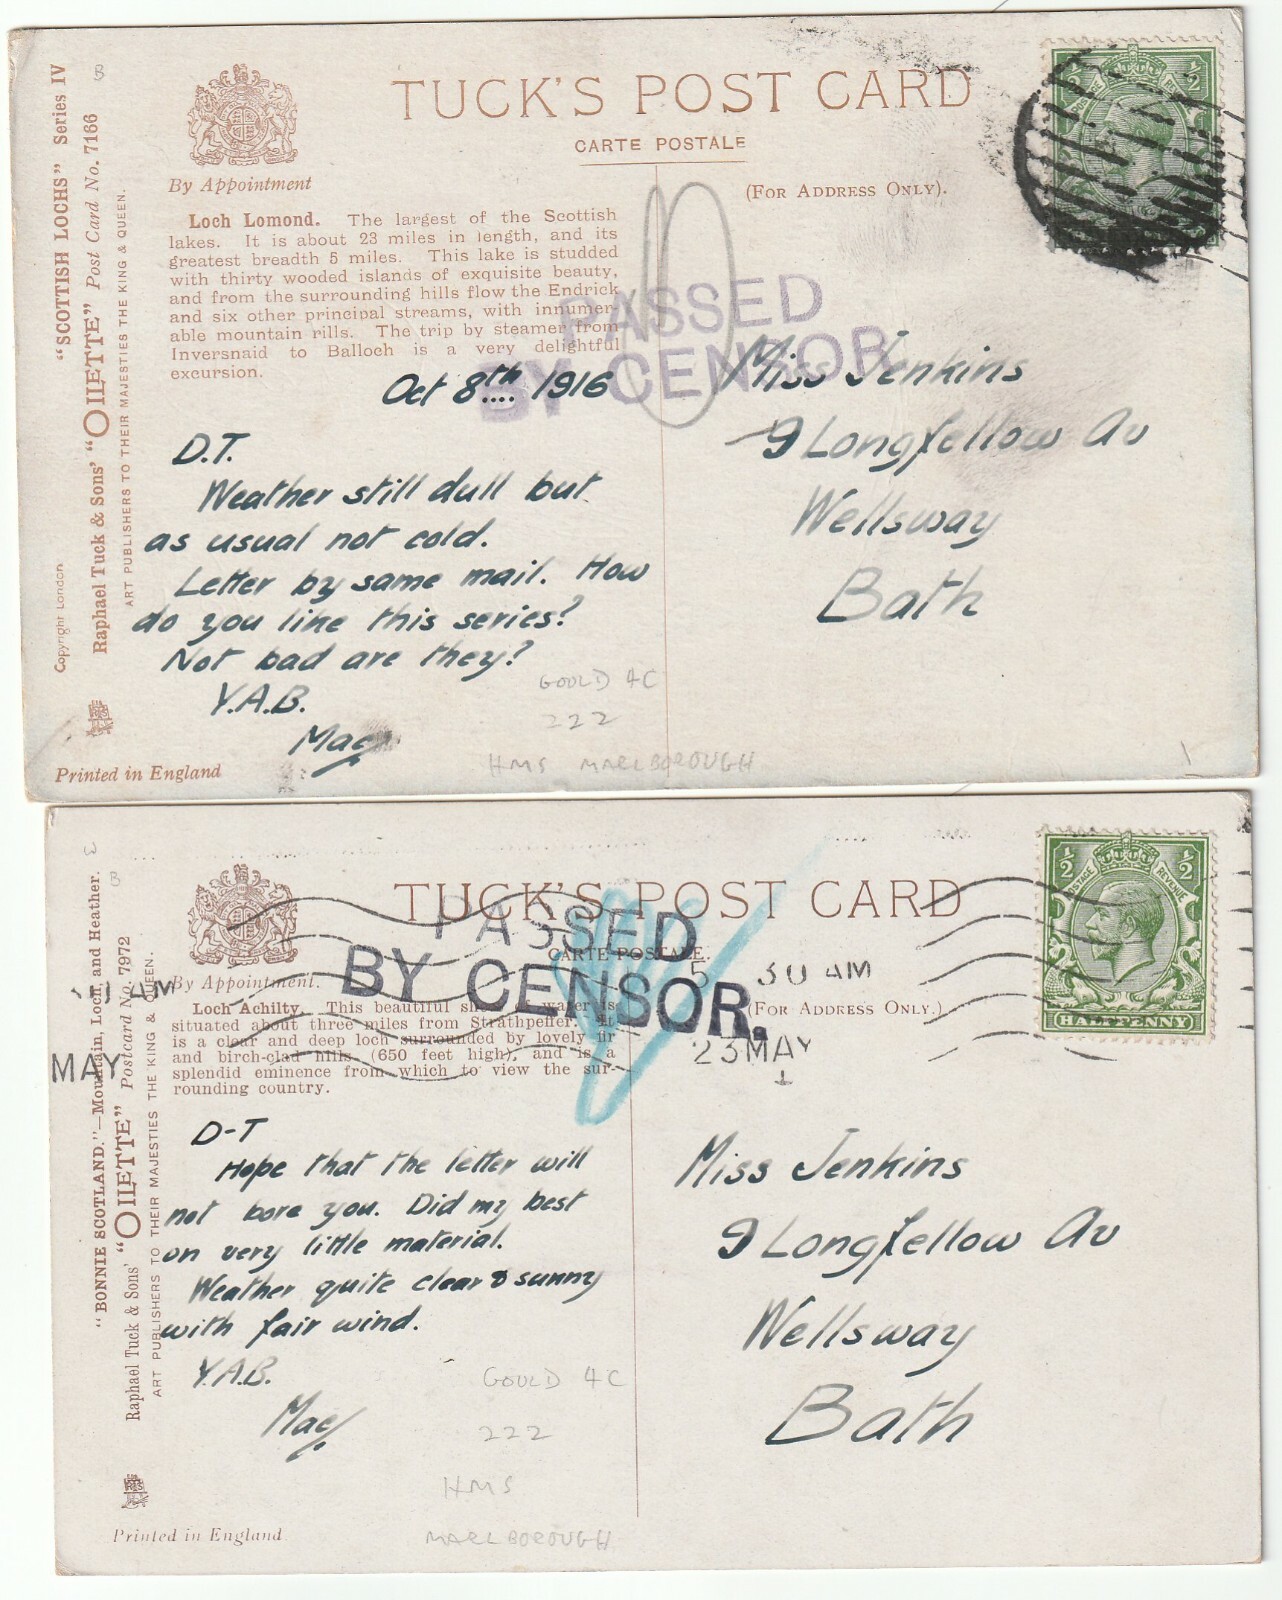 "SCOTTISH LOCHS" Series IV
Raphael Tuck & Sons' "OILETTE" Post Card No. 7166
ART PUBLISHERS TO THEIR MAJESTIES THE KING & QUEEN.
Copyright London
TUCK'S POST CARD
CARTE POSTALE
By Appointment
(FOR ADDRESS ONLY).
Loch Lomond. The largest of the Scottish
lakes. It is about 23 miles in length, and its
greatest breadth 5 miles. This lake is studded
with thirty wooded islands of exquisite beauty,
and from the surrounding hills flow the Endrick
and six other principal streams, with innumer-
able mountain rills. The trip by steamer from
Inversnaid to Balloch is a very delightful
excursion.
PASSED
BY CENSOR
Oct 8th 1916
D.T.
Weather still dull but
as usual not cold.
Letter by same mail. How
do you like this series?
Not bad are they?
Y.A.B.
Mac
Miss Jenkins
9 Longfellow Av
Wellsway
Bath
GOULD 4C
222
HMS MARLBOROUGH
Printed in England
1/2 1/2
"BONNIE SCOTLAND."—Mountain, Loch, and Heather.
Raphael Tuck & Sons' "OILETTE" Postcard No. 7972
ART PUBLISHERS TO THEIR MAJESTIES THE KING & QUEEN.
TUCK'S POST CARD
CARTE POSTALE.
By Appointment.
(FOR ADDRESS ONLY.)
Loch Achilty. This beautiful sheet of water is
situated about three miles from Strathpeffer. It
is a clear and deep loch surrounded by lovely fir
and birch-clad hills (650 feet high), and is a
splendid eminence from which to view the sur-
rounding country.
PASSED
BY CENSOR.
5 30 AM
23 MAY
AM
MAY
1/2 1/2
POSTAGE REVENUE
HALFPENNY
D-T
Hope that the letter will
not bore you. Did my best
on very little material.
Weather quite clear & sunny
with fair wind.
Y.A.B.
Mac
Miss Jenkins
9 Longfellow Av
Wellsway
Bath
GOULD 4C
222
HMS
MARLBOROUGH
Printed in England